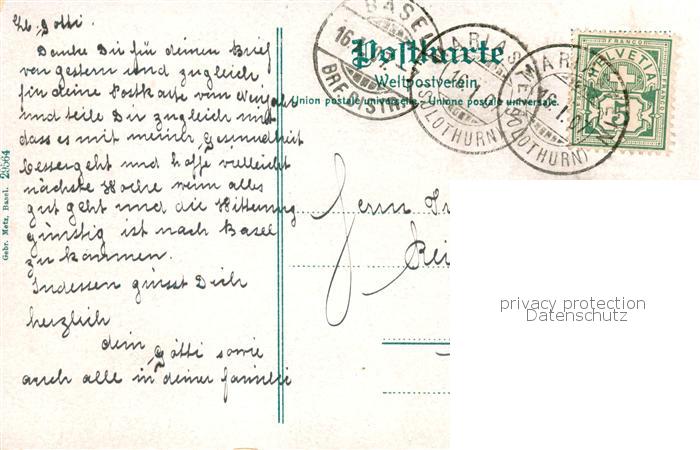 Lb. Götti.
Danke Dir für deinen Brief
von gestern und zugleich
für deine Postkarte vom Neujahr
und teile Dir zugleich mit
dass es mit meiner Gesundheit
besser geht und hoffe vielleicht
nächste Woche wenn alles
gut geht und die Witterung
günstig ist nach Basel
zu kommen.
Indessen grüsst Dich
herzlich
dein Götti sowie
auch alle in deiner Familie
Gebr. Metz, Basel. 29564
Postkarte
Weltpostverein
Union postale universelle. - Unione postale universale.
BASEL
16.
BRF. G. STR.
MARIAST
16. I.
(SOLOTHURN)
MARIAST
16. I.
(SOLOTHURN)
FRANCO
HELVETIA
5
Herrn
privacy protection
Datenschutz